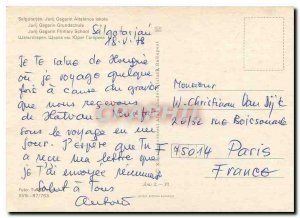 Salgótarján. Jurij Gagarin Általános Iskola
Jurij Gagarin Grundschule
Jurij Gagarin Primary School
Шальготарян. Школа им. Юрия Гагарина
Salgotarjan
18.V.78
Je te salue de Hongrie
où je voyage quelque
fois à cause du gravier
que nous recevons
de Hatvan.
sous le voyage en un
jour. J'espère que Tu
a reçu ma lettre que
je T'ai envoyée
Salut à Tous
Monsieur
W. Christiaan Van Dijk
26/32 rue Boissonade
75014 Paris
France